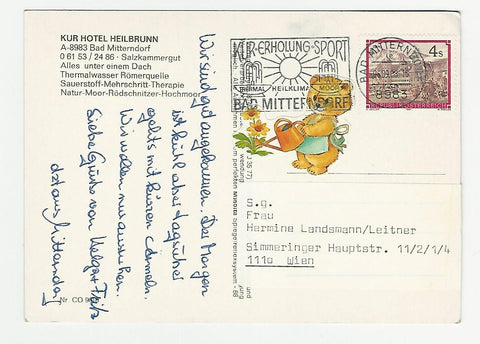 KUR HOTEL HEILBRUNN
A-8983 Bad Mitterndorf
0 61 53 / 24 86 · Salzkammergut
Alles unter einem Dach
Thermalwasser Römerquelle
Sauerstoff-Mehrschritt-Therapie
Natur-Moor-Rödschnitzer-Hochmoor
Wir sind gut angekommen. Der Morgen
ist kühl aber tagsüber
geht's mit kurzen Ärmeln.
Wir wollen nur ausruhen.
Liebe Grüße von Helga + Fritz
dzt aus Mitterndorf
Nr CO
KUR-ERHOLUNG-SPORT
THERMAL HEILKLIMA MOOR
BAD MITTERNDORF
BAD MITTERNDORF
8983
4 S
REPUBLIK ÖSTERREICH
S.g.
Frau
Hermine Landsmann/Leitner
Simmeringer Hauptstr. 11/2/1/4
111o Wien